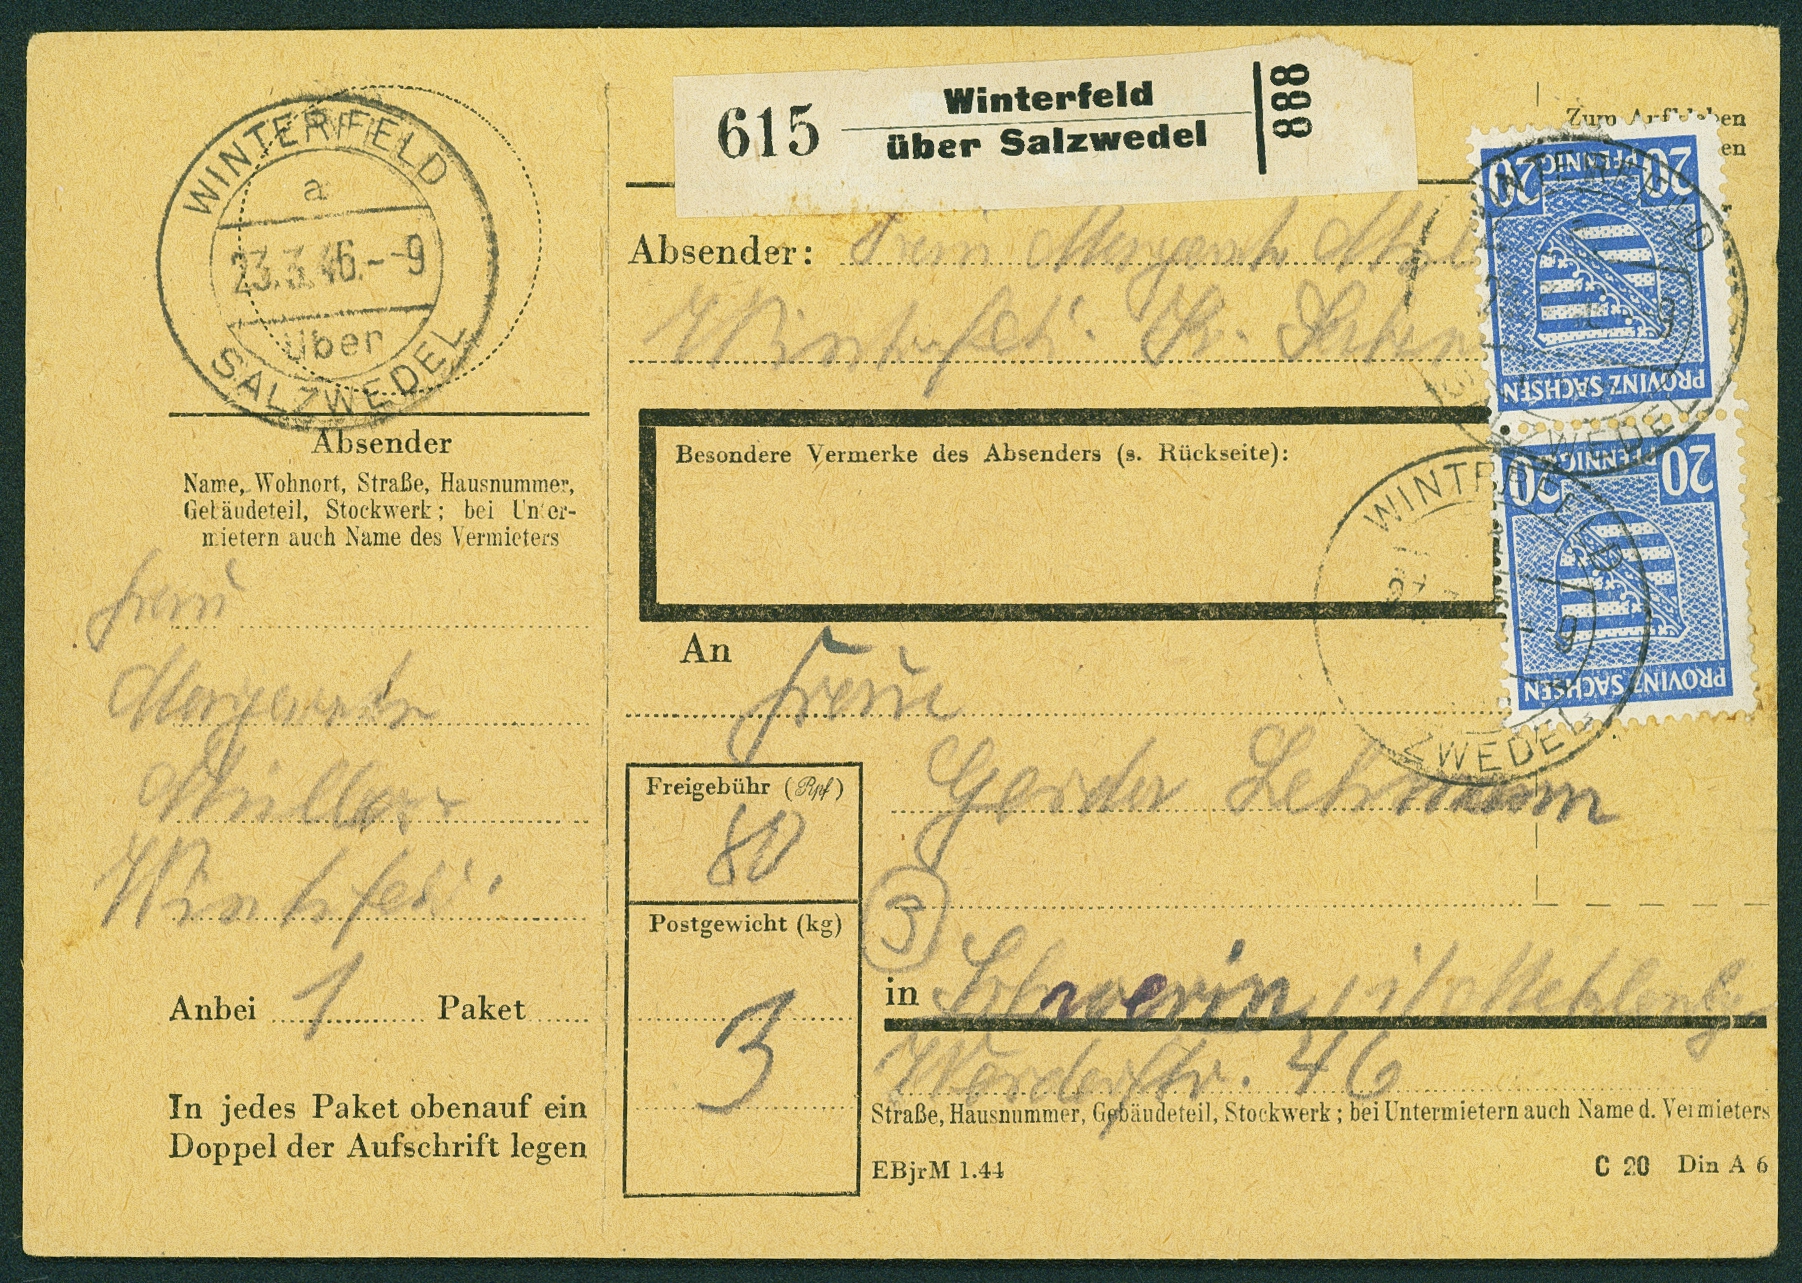 WINTERFELD
a
23.3.46.--9
über
SALZWEDEL
615
Winterfeld
über Salzwedel
888
Zum Aufkleben
en
Absender: Frau Margarete
Winterfeld. Kr.
PFENNIG
20 20
PROVINZ SACHSEN
PFENNIG
20 20
PROVINZ SACHSEN
WINTERFELD
9
ZWEDEL
WINTERFELD
9
ZWEDEL
Absender
Name, Wohnort, Straße, Hausnummer,
Gebäudeteil, Stockwerk; bei Unter-
mietern auch Name des Vermieters
Frau
Margarete
Müller
Winterfeld.
Anbei 1 Paket
In jedes Paket obenauf ein
Doppel der Aufschrift legen
Besondere Vermerke des Absenders (s. Rückseite):
An Frau
Gerda Lehmann
Freigebühr (Rpf)
80
Postgewicht (kg)
3
3
in Schwerin, i/ Meklenbg
Werderstr. 46
Straße, Hausnummer, Gebäudeteil, Stockwerk; bei Untermietern auch Name d. Vermieters
EBjrM 1.44
C 20 Din A 6